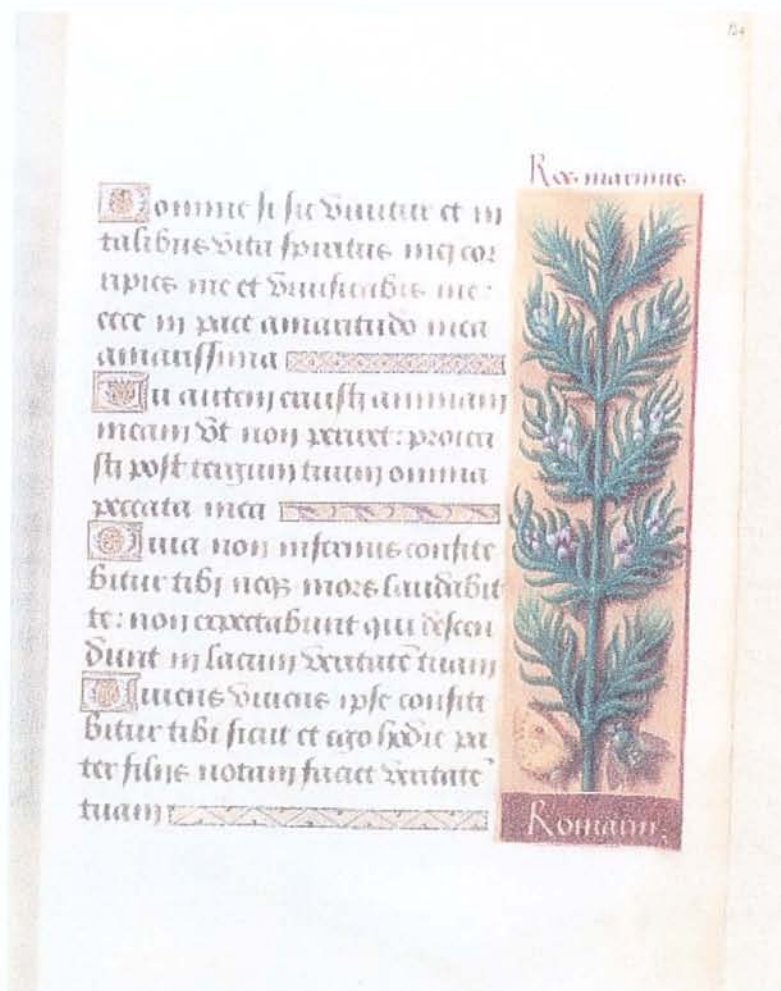 Ros marinus
Domine si sic vivitur et in
talibus vita spiritus mei cor
ripies me et vivificabis me:
ecce in pace amaritudo mea
amarissima
Tu autem eruisti animam
meam ut non periret: proieci
sti post tergum tuum omnia
peccata mea
Quia non infernus confite
bitur tibi neq3 mors laudabit
te: non expectabunt qui descen
dunt in lacum veritatē tuam
Vivens vivens ipse confite
bitur tibi sicut et ego hodie pa
ter filiis notam faciet veritatē
tuam
Romarin